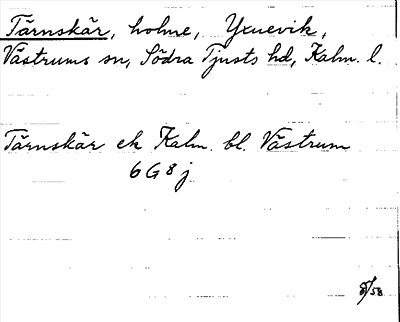 Tärnskär, holme, Yxnevik,
Västrums sn, Södra Tjusts hd, Kalm. l.
Tärnskär ek Kalm. bl. Västrum
6 G 8 j
8/58